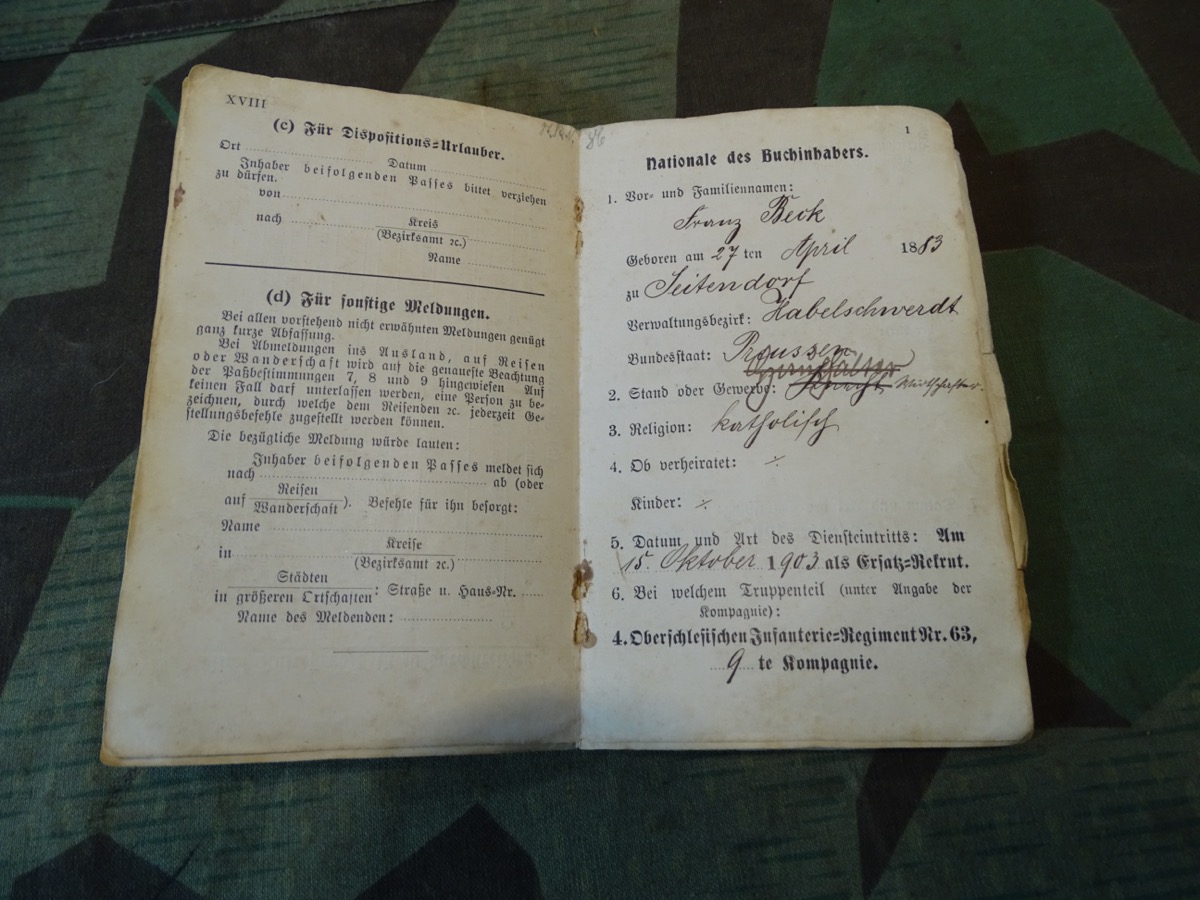 XVIII
(c) Für Dispositions=Urlauber.
Ort Datum
Inhaber beifolgenden Passes bittet verziehen
zu dürfen.
von
nach Kreis
(Bezirksamt ꝛc.)
Name
(d) Für sonstige Meldungen.
Bei allen vorstehend nicht erwähnten Meldungen genügt
ganz kurze Abfassung.
Bei Abmeldungen ins Ausland, auf Reisen
oder Wanderschaft wird auf die genaueste Beachtung
der Paßbestimmungen 7, 8 und 9 hingewiesen Auf
keinen Fall darf unterlassen werden, eine Person zu be-
zeichnen, durch welche dem Reisenden ꝛc. jederzeit Ge-
stellungsbefehle zugestellt werden können.
Die bezügliche Meldung würde lauten:
Inhaber beifolgenden Passes meldet sich
nach ab (oder
auf Reisen
Wanderschaft ). Befehle für ihn besorgt:
Name
in Kreise
(Bezirksamt ꝛc.)
Städten
in größeren Ortschaften : Straße u. Haus=Nr.
Name des Meldenden:
86
1
Nationale des Buchinhabers.
1. Vor= und Familiennamen:
Franz Beck
Geboren am 27 ten April 1883
zu Seitendorf
Verwaltungsbezirk: Habelschwerdt
Bundesstaat: Preussen
2. Stand oder Gewerbe: Knecht Wirthschafter.
3. Religion: katholisch
4. Ob verheiratet: ⁒
Kinder: ⁒
5. Datum und Art des Diensteintritts: Am
15. Oktober 1903 als Ersatz=Rekrut.
6. Bei welchem Truppenteil (unter Angabe der
Kompagnie):
4. Oberschlesischen Infanterie=Regiment Nr. 63,
9 te Kompagnie.